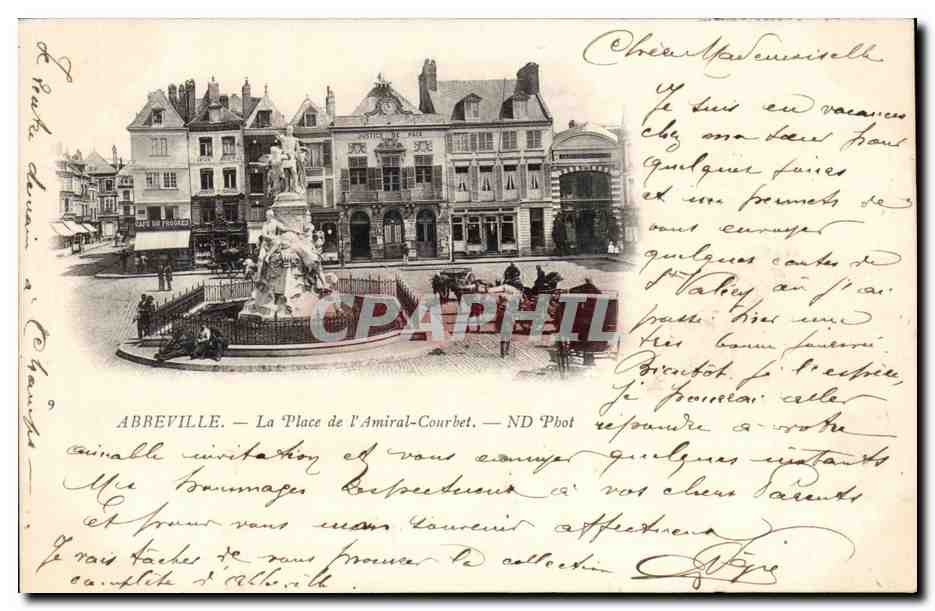 Chère Mademoiselle
Je suis en vacances
chez ma sœur pour
quelques jours
et me permets de
vous envoyer
quelques cartes de
St Valéry où j'ai
passé hier une
très bonne journée.
Bientôt, je l'espère,
je pourrai aller
répondre à votre
aimable invitation et vous envoyer quelques instants
Mes hommages respectueux à vos chers Parents
et pour vous mon souvenir affectueux
Je vais tâcher de vous procurer la collection
complète d'Abbeville.
Je rentre demain à
CAFE DU PROGRES
JUSTICE DE PAIX
CARPHIL
9
ABBEVILLE. — La Place de l'Amiral-Courbet. — ND Phot